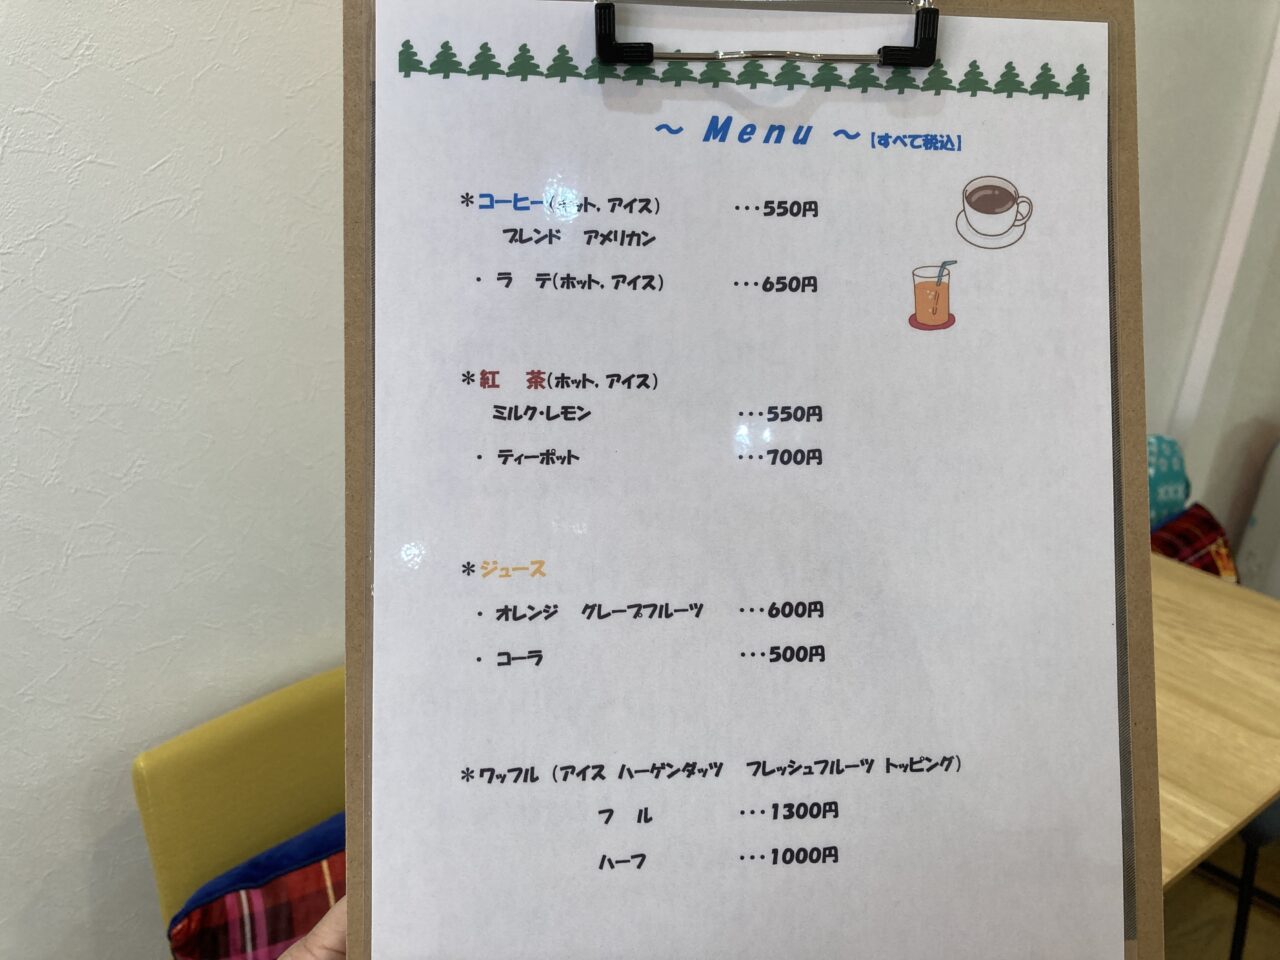 ～ Menu ～【すべて税込】
＊コーヒー(ホット, アイス) ･･･550円
ブレンド アメリカン
・ ラ テ(ホット, アイス) ･･･650円
＊紅 茶(ホット, アイス)
ミルク・レモン ･･･550円
・ ティーポット ･･･700円
＊ジュース
・ オレンジ グレープフルーツ ･･･600円
・ コーラ ･･･500円
＊ワッフル (アイス ハーゲンダッツ フレッシュフルーツ トッピング)
フ ル ･･･1300円
ハーフ ･･･1000円